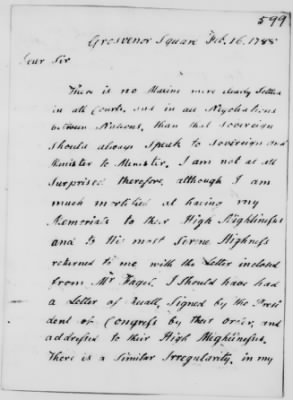 599
Grosvenor Square Feb. 16. 1788
Dear Sir
There is no Maxim more clearly settled
in all Courts, and in all Negotiations
between Nations, than that sovereign
should always speak to sovereign and
Minister to Minister. I am not at all
surprised therefore, although I am
much mortified at having my
Memorials to their High Mightinesses
and to His most Serene Highness
returned to me with the Letter inclosed
from Mr. Fagel. I should have had
a Letter of Recall, signed by the Presi
dent of Congress by their order, and
addressed to their High Mightinesses.
There is a similar Irregularity, in my